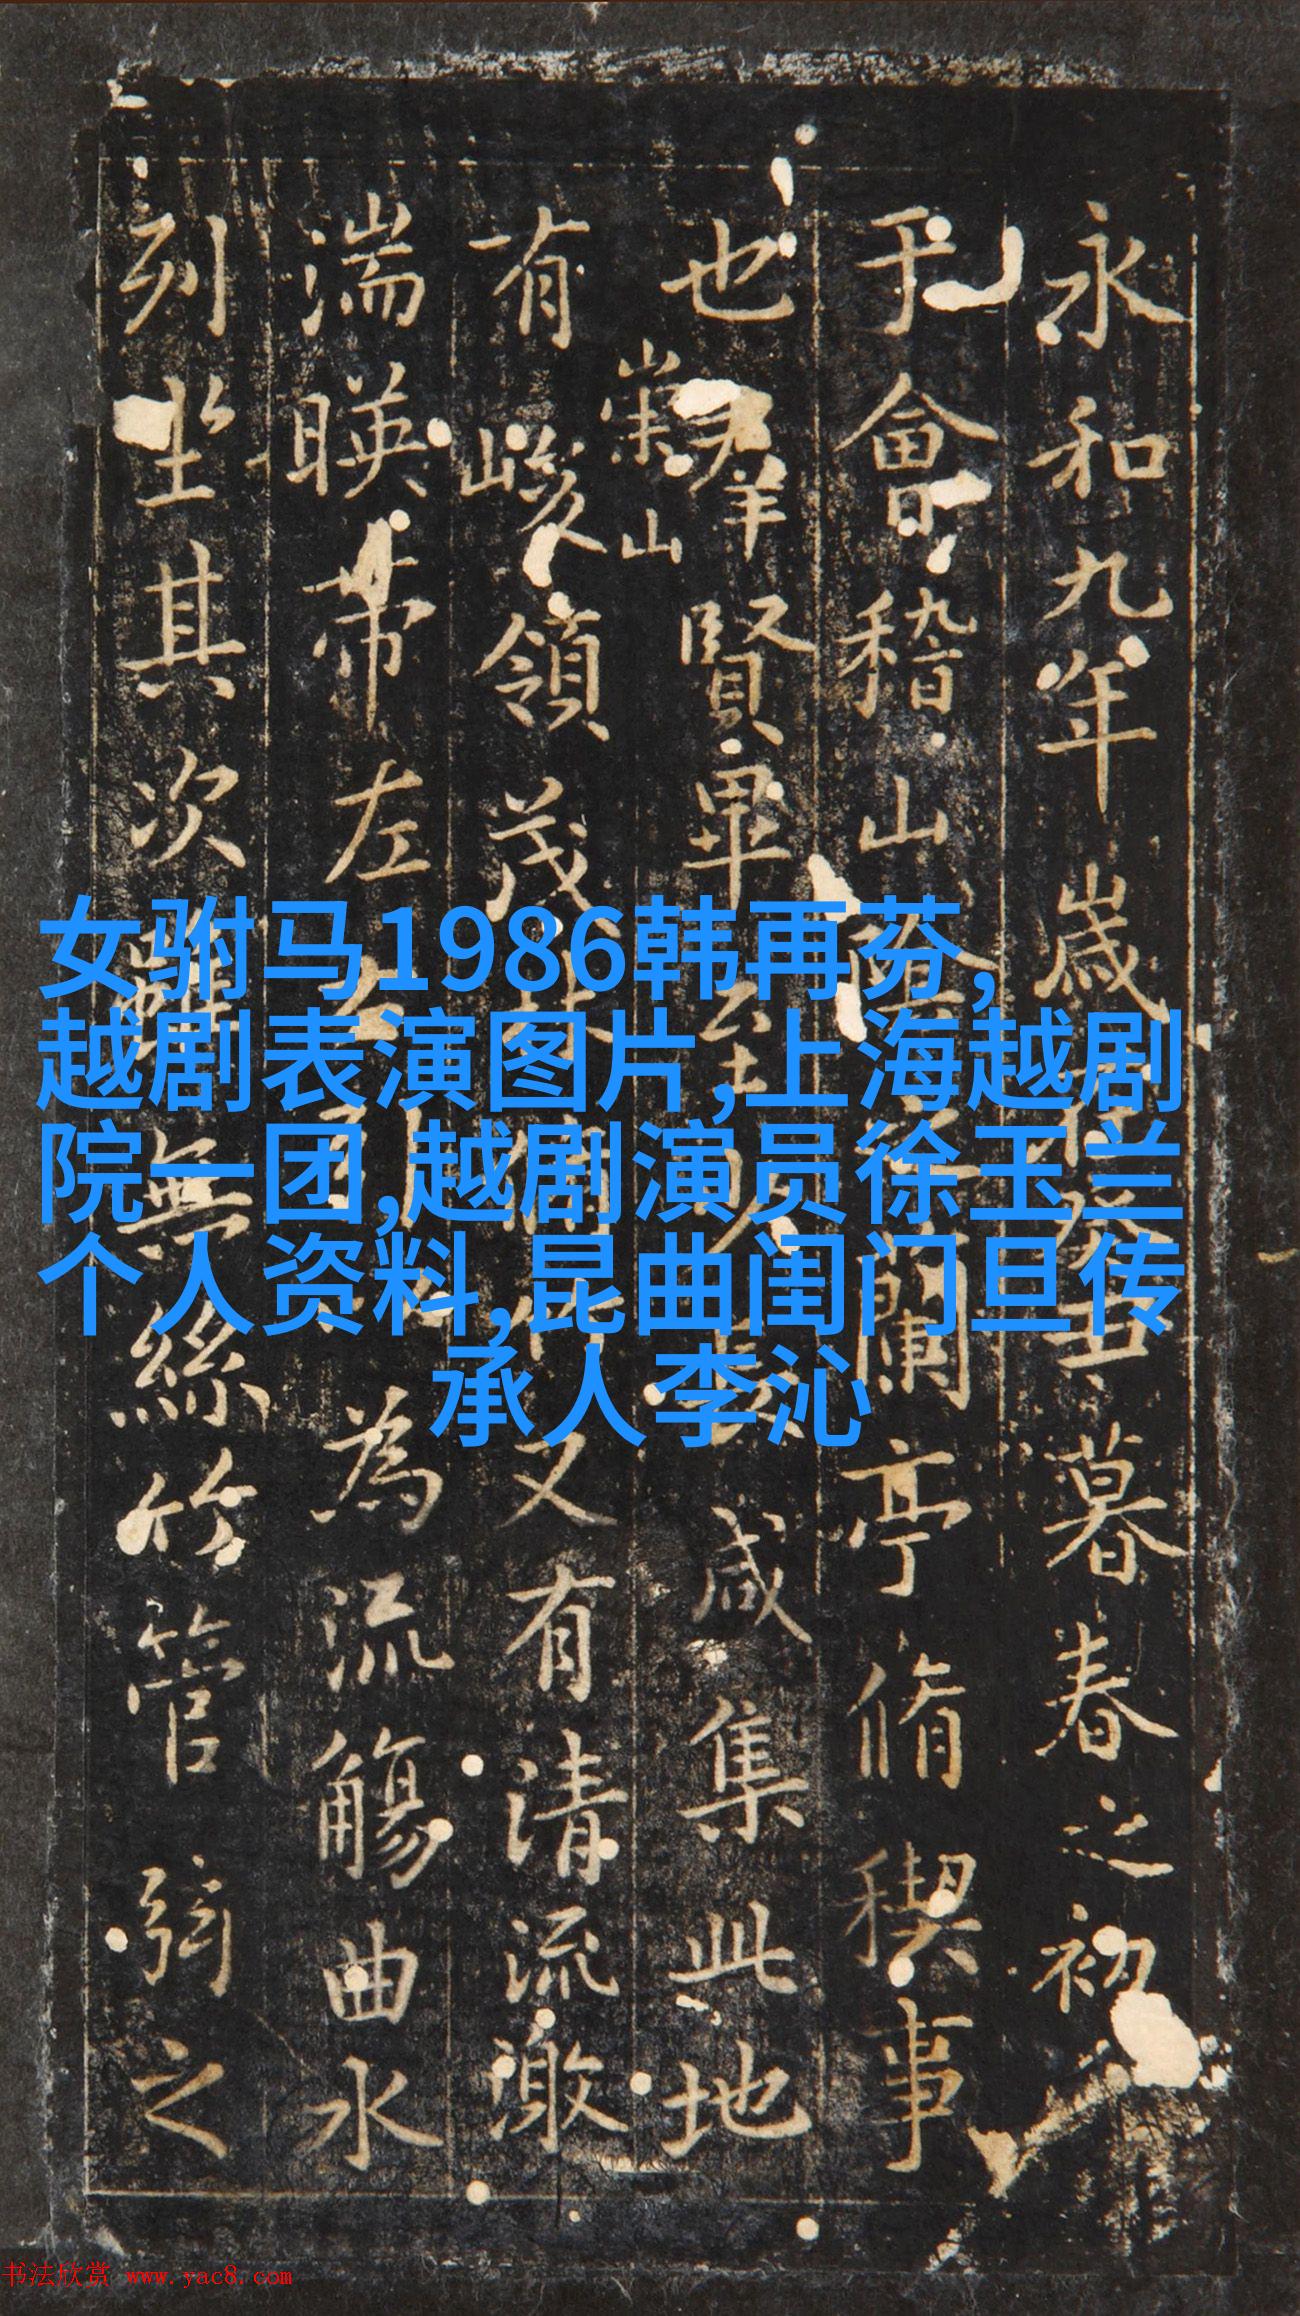 永和九年歲在癸丑暮春之初
于會稽山陰之蘭亭脩稧事
也羣賢畢至少長咸集此地
崇山
有峻領茂林脩竹又有清流激
湍暎帶左右引以為流觴曲水
列坐其次雖無絲竹管弦之
女驸马1986韩再芬,
越剧表演图片,上海越剧
院一团,越剧演员徐玉兰
个人资料,昆曲闺门旦传
承人李沁
书法欣赏 www.yac8.com